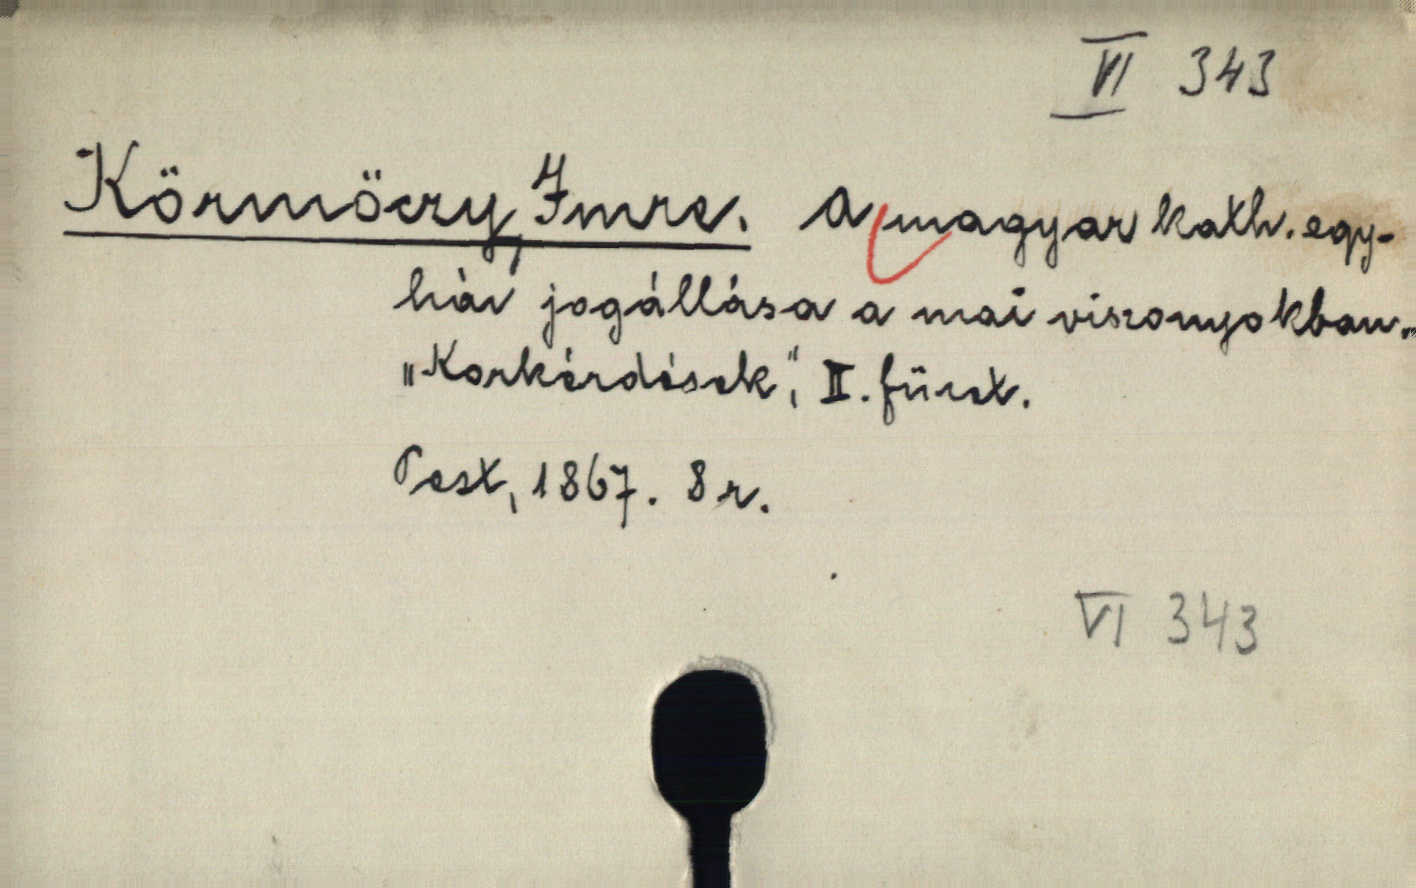 VI 343
Körmöczy, Imre. A magyar kath. egy-
ház jogállása a mai viszonyokban.
„Korkérdések”, II. füzet.
Pest, 1867. 8r.
VI 343